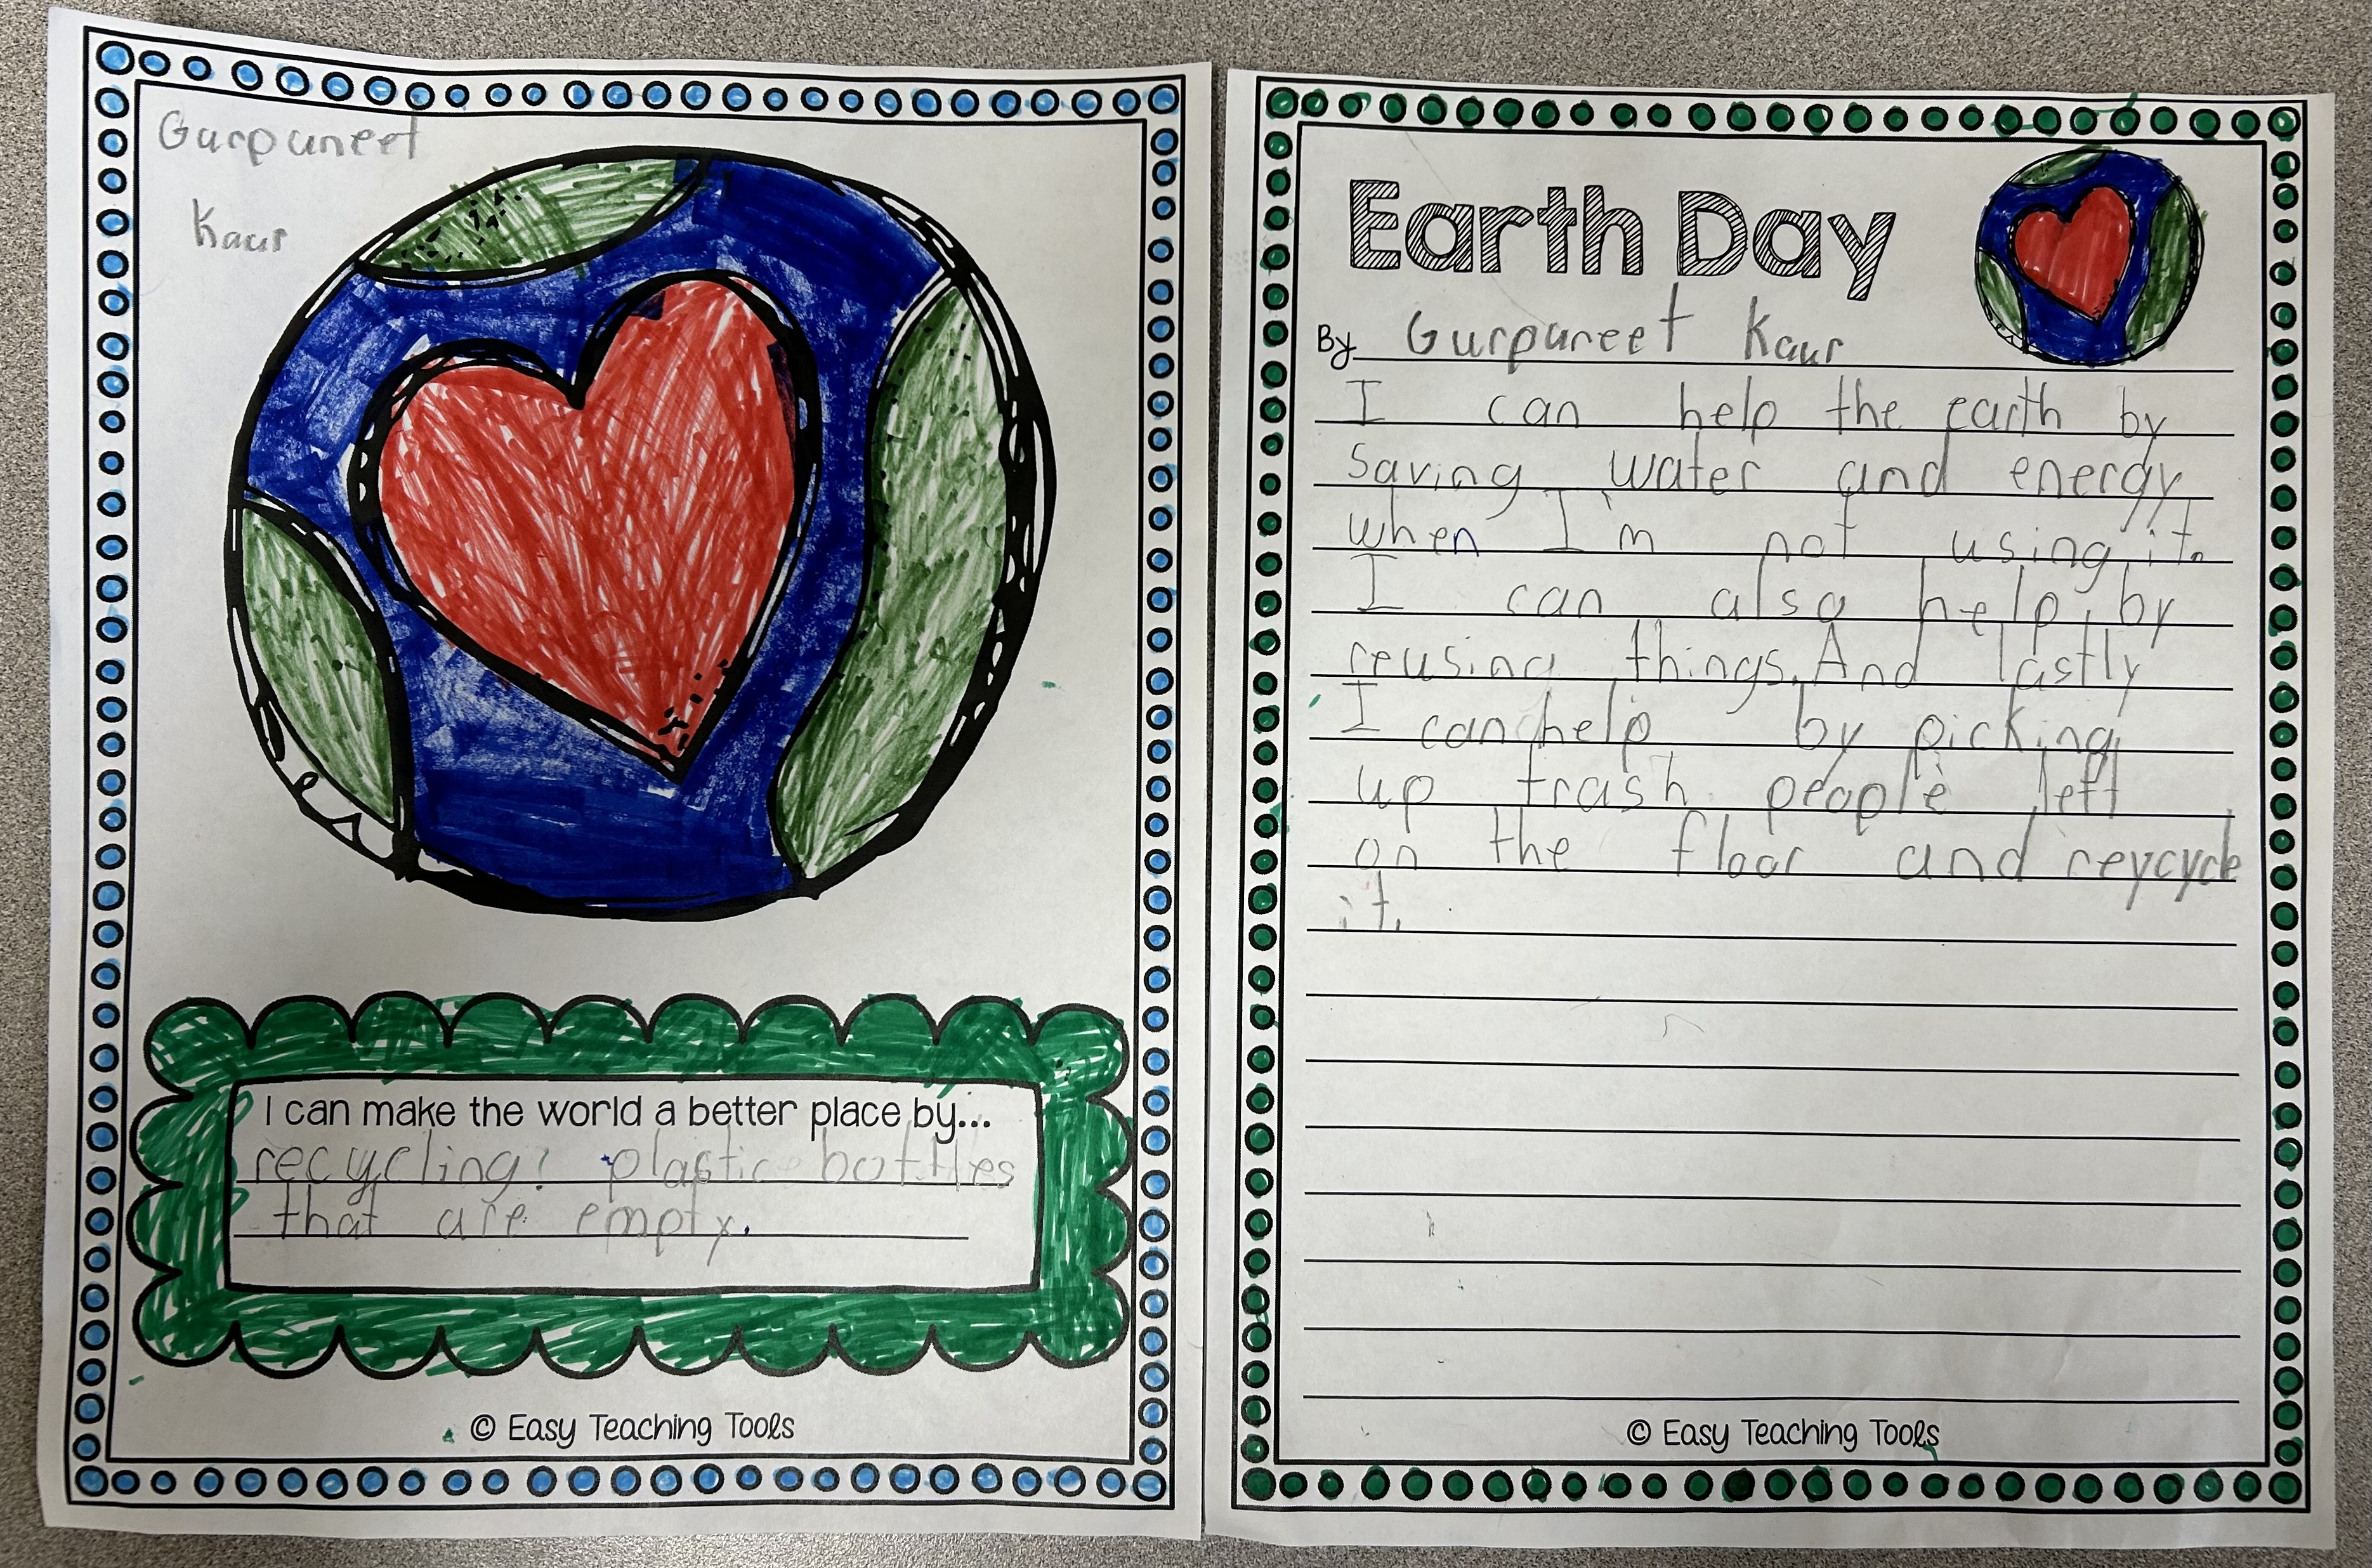 Gurpuneet
Kaur
I can make the world a better place by...
recycling! plastic bottles
that are empty.
© Easy Teaching Tools
Earth Day
By Gurpuneet Kaur
I can help the earth by
saving water and energy
when I'm not using it.
I can also help by
reusing things. And lastly
I can help by picking
up trash people left
on the floor and reycycle
it.
© Easy Teaching Tools